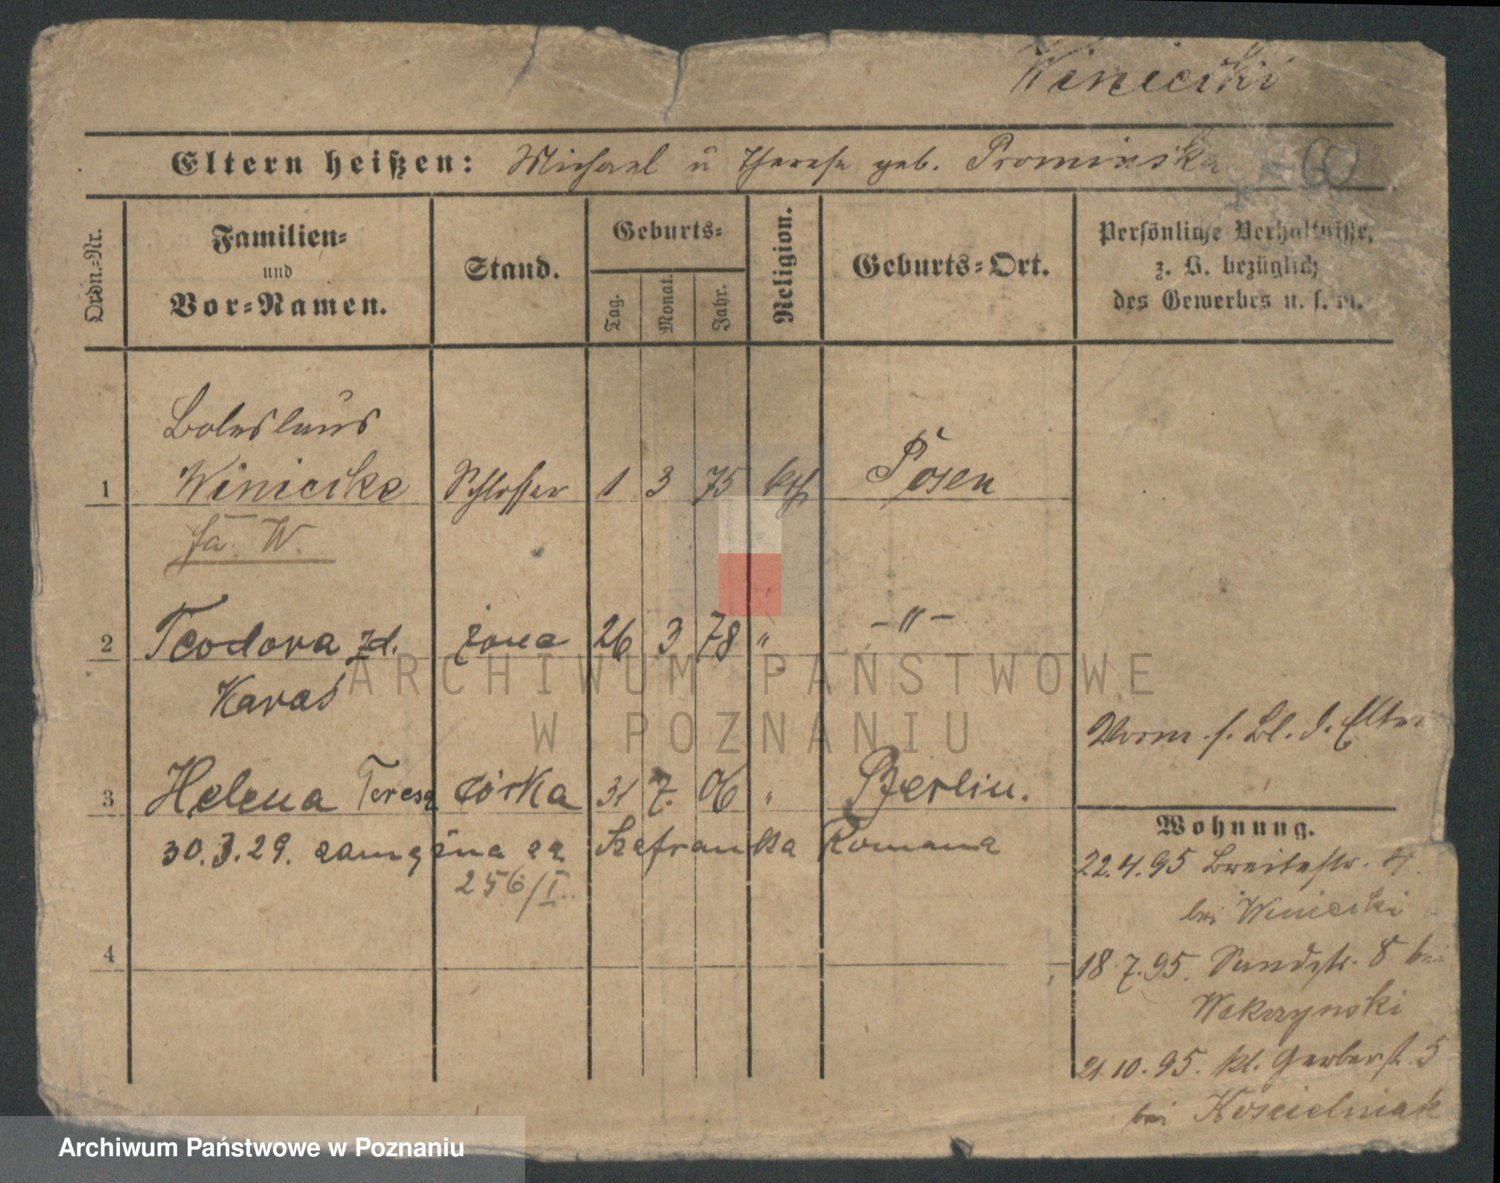 Winiecki
Eltern heißen: Michael u Therese geb. Prominska
Ordn.-Nr.
Familien-
und
Vor-Namen.
Stand.
Geburts-
Tag.
Monat.
Jahr.
Religion.
Geburts-Ort.
Persönliche Verhältnisse,
z. B. bezüglich
des Gewerbes u. s. w.
Boleslaus
1 Winiecke Schlosser 1 3 75 kth Posen
W.
2 Teodora zd. żona 26 3 78 " -"-
Karaś
Vorm. s. Bl. d. Eltern
3 Helena Teresa córka 31 7. 06 " Berlin.
30.3.29. zamężna za Szafranka Romana
256/I.
Wohnung.
22.4.95 Breitestr.
bei Winiecki
4
18.7.95. Sandstr. 8 bei
21.10.95. kl. Gerberstr. 5
bei Kościelniak
ARCHIWUM PAŃSTWOWE
W POZNANIU
Archiwum Państwowe w Poznaniu